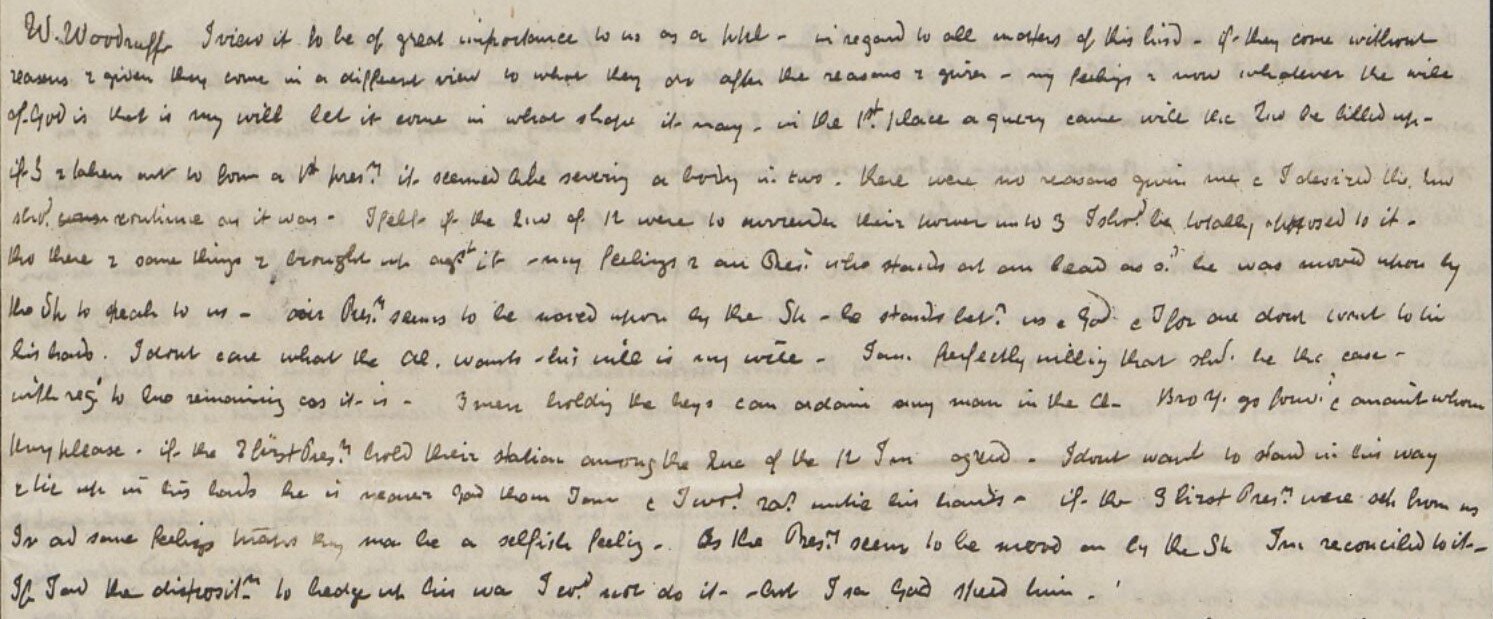 W. Woodruff I view it to be of great importance to us as a ppl - in regard to all matters of this kind - if they come without
reasons r given they come in a different view to what they are after the reasons r given - my feelings r now whatever the will
of God is that is my will let it come in what shape it may - in the 1st. place a query came will the 2no be filled up -
if 3 r taken out to form a 1st pres.y it seemed like severing a body in two - there were no reasons given me & I desired the 2no
sho.d continue as it was - I felt if the 2no of 12 were to surrender their power unto 3 I sho.d be totally opposed to it -
tho there r some things r brought up agst it - my feelings r our Pres.t who stands at our head as o.r he was moved upon by
the Sp to speak to us - our Pres.t seems to be moved upon by the Sp - he stands bet.n us & God & I for one dont want to tie
his hands. I dont care what the Ch. wants - his will is my will - I am perfectly willing that sho.d be the case -
with reg.d to 2no remaining as it is - 3 men holding the keys can ordain any man in the Ch - Bro Y. go forw.d & anoint whom
they please - if the 3 first Pres.y hold their station among the 2no of the 12 I'm agreed - I dont want to stand in his way
r tie up in his hands he is nearer God than I am & I wo.d rar. untie his hands - if the 3 first Pres.y were sep from us
I r ad some feelings they ma be a selfish feeling - As the Pres.t seem to be moved on by the Sp I'm reconciled to it -
If I ad the disposit.n to hedge up his wa I co.d not do it - but I sa God speed him -